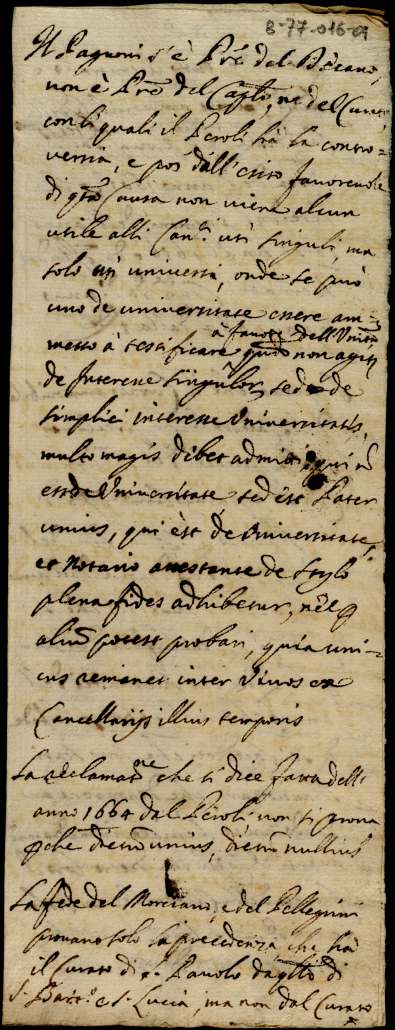 8-77-016-a
Il Pagnoni s'è Prē del Decano,
non è Prē del Capto, ne del Curato
con li quali il Peroli hà la contro=
versia, e poi dall'esito favorevole
di qta Causa non viene alcun
utile alli Canci uti singuli, ma
solo uti universi, onde se può
uno de universitate essere am=
messo à testificare à favore dell'Unità
qndo non agitr
de Interesse singulor, sed de
simplici interesse Universitatis,
multo magis debet admitti, qui nō
est de Universitate sed est Pater
unius, qui est de Universitate,
et Notario attestante de stylo
plena fides adhibetur, nec p
aliū potest probari, quia uni=
cus remanet inter vivos ex
Cancellarijs illius temporis
La reclamatne che si dice fatta dell'
anno 1664 dal Peroli non si prova
pchè dictū unius, dictū nullius
La fede del Morciano, e del Pellegrini
provano solo la precedenza che hà
il Curato di S. Pauolo da qllo di
S. Barto e S. Lucia, ma non dal Curato